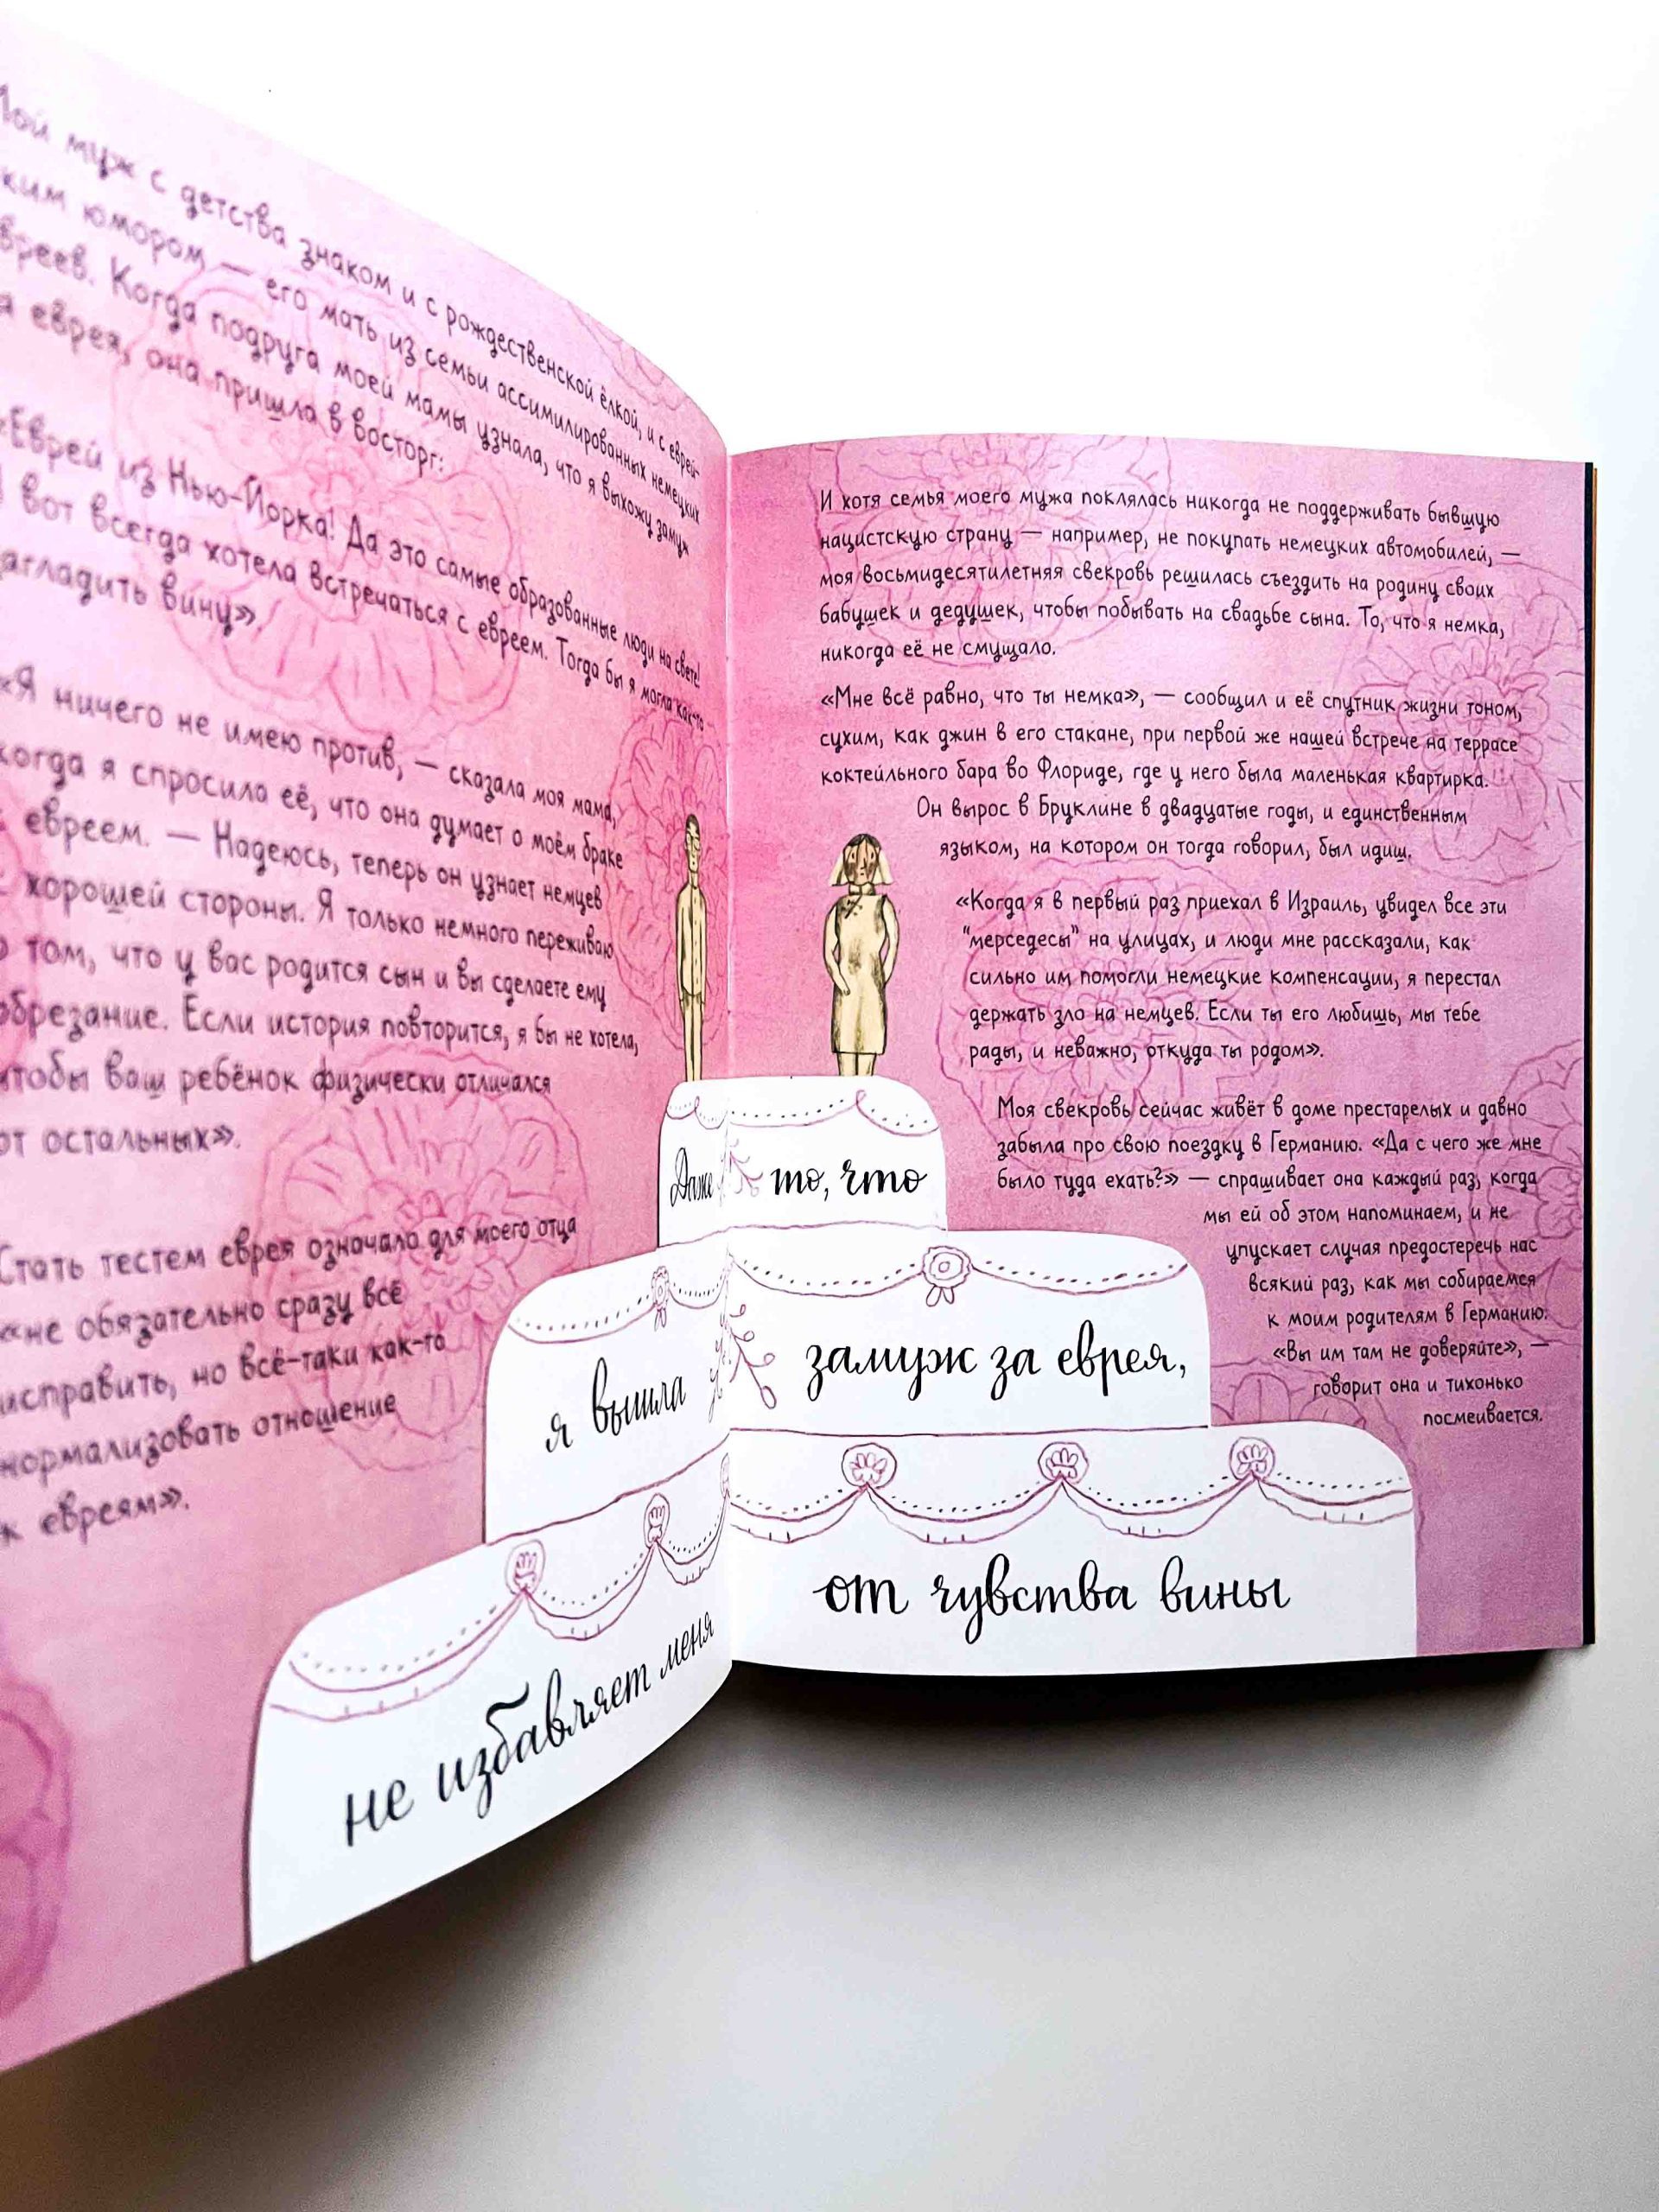 Мой муж с детства знаком и с рождественской ёлкой, и с еврей-
ским юмором — его мать из семьи ассимилированных немецких
евреев. Когда подруга моей мамы узнала, что я выхожу замуж
за еврея, она пришла в восторг:
«Еврей из Нью-Йорка! Да это самые образованные люди на свете!
Я вот всегда хотела встречаться с евреем. Тогда бы я могла как-то
загладить вину».
«Я ничего не имею против, — сказала моя мама,
когда я спросила её, что она думает о моём браке
с евреем. — Надеюсь, теперь он узнает немцев
с хорошей стороны. Я только немного переживаю
о том, что у вас родится сын и вы сделаете ему
обрезание. Если история повторится, я бы не хотела,
чтобы ваш ребёнок физически отличался
от остальных».
Стать тестем еврея означало для моего отца
«не обязательно сразу всё
исправить, но всё-таки как-то
нормализовать отношение
к евреям».
И хотя семья моего мужа поклялась никогда не поддерживать бывшую
нацистскую страну — например, не покупать немецких автомобилей, —
моя восьмидесятилетняя свекровь решилась съездить на родину своих
бабушек и дедушек, чтобы побывать на свадьбе сына. То, что я немка,
никогда её не смущало.
«Мне всё равно, что ты немка», — сообщил и её спутник жизни тоном,
сухим, как джин в его стакане, при первой же нашей встрече на террасе
коктейльного бара во Флориде, где у него была маленькая квартирка.
Он вырос в Бруклине в двадцатые годы, и единственным
языком, на котором он тогда говорил, был идиш.
«Когда я в первый раз приехал в Израиль, увидел все эти
"мерседесы" на улицах, и люди мне рассказали, как
сильно им помогли немецкие компенсации, я перестал
держать зло на немцев. Если ты его любишь, мы тебе
рады, и неважно, откуда ты родом».
Моя свекровь сейчас живёт в доме престарелых и давно
забыла про свою поездку в Германию. «Да с чего же мне
было туда ехать?» — спрашивает она каждый раз, когда
мы ей об этом напоминаем, и не
упускает случая предостеречь нас
всякий раз, как мы собираемся
к моим родителям в Германию.
«Вы им там не доверяйте», —
говорит она и тихонько
посмеивается.
Даже то, что
я вышла замуж за еврея,
не избавляет меня от чувства вины